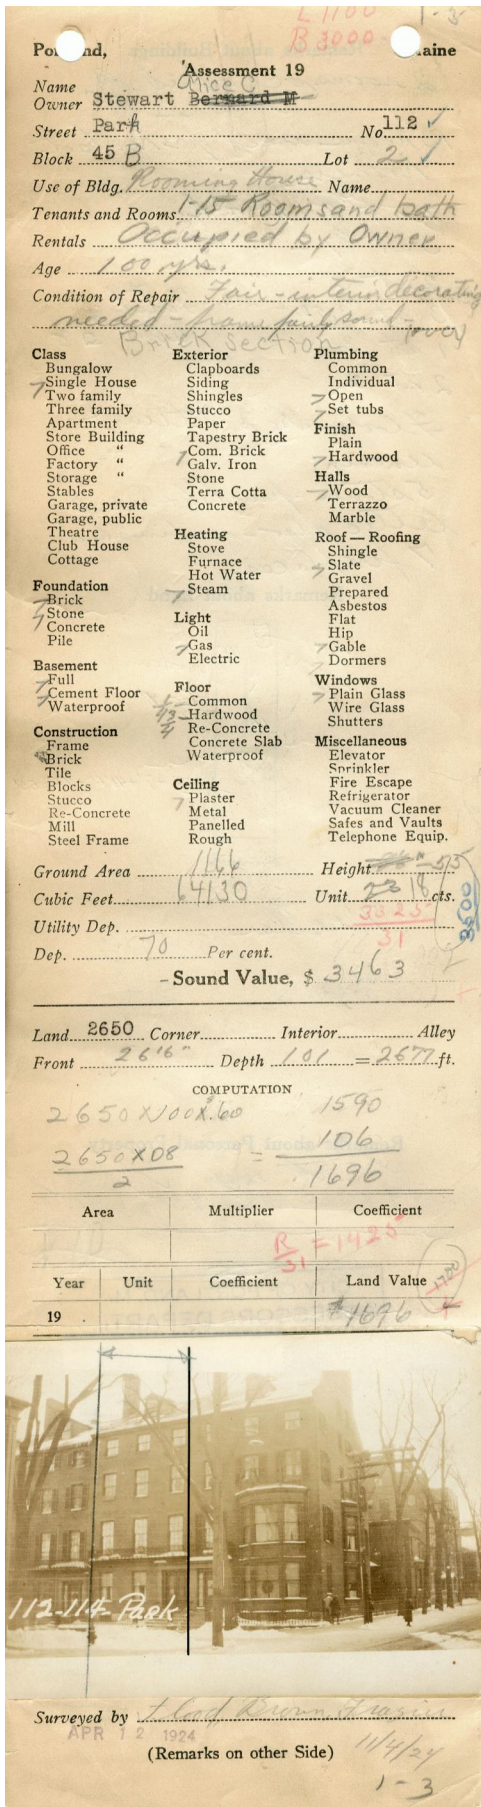 L 1100 1-3
B 3000-
Portland, Maine
Assessment 19
Alice C
Name
Owner Stewart Bernard M
Street Park No 112 ✓
Block 45 B Lot 2 ✓
Use of Bldg. Rooming House Name
Tenants and Rooms 1-15 Rooms and bath
Rentals Occupied by Owner
Age 100 yrs.
Condition of Repair Fair - interior decorating
needed - frame fairly sound -
Brick section
Class
Bungalow
Single House
Two family
Three family
Apartment
Store Building
Office "
Factory "
Storage "
Stables
Garage, private
Garage, public
Theatre
Club House
Cottage
Foundation
Brick
Stone
Concrete
Pile
Basement
Full
Cement Floor
Waterproof
Construction
Frame
Brick
Tile
Blocks
Stucco
Re-Concrete
Mill
Steel Frame
Exterior
Clapboards
Siding
Shingles
Stucco
Paper
Tapestry Brick
Com. Brick
Galv. Iron
Stone
Terra Cotta
Concrete
Heating
Stove
Furnace
Hot Water
Steam
Light
Oil
Gas
Electric
Floor
Common
Hardwood
Re-Concrete
Concrete Slab
Waterproof
Ceiling
Plaster
Metal
Panelled
Rough
Plumbing
Common
Individual
Open
Set tubs
Finish
Plain
Hardwood
Halls
Wood
Terrazzo
Marble
Roof — Roofing
Shingle
Slate
Gravel
Prepared
Asbestos
Flat
Hip
Gable
Dormers
Windows
Plain Glass
Wire Glass
Shutters
Miscellaneous
Elevator
Sprinkler
Fire Escape
Refrigerator
Vacuum Cleaner
Safes and Vaults
Telephone Equip.
Ground Area 1166 Height 55
Cubic Feet 64130 Unit 23 18 cts.
3325
31
3500
Utility Dep.
Dep. 70 Per cent.
-Sound Value, $ 3463
Land 2650 Corner Interior Alley
Front 26'6" Depth 101 = 2677 ft.
COMPUTATION
2650 X 100 X .60 1590
2650 X 08 = 106
2 1696
Area Multiplier Coefficient
R/31 = 1425
Year Unit Coefficient Land Value
19 $1696
112-114-Park
Surveyed by Flood Brown Frazier
APR 12 1924
(Remarks on other Side) 11/4/24
1-3